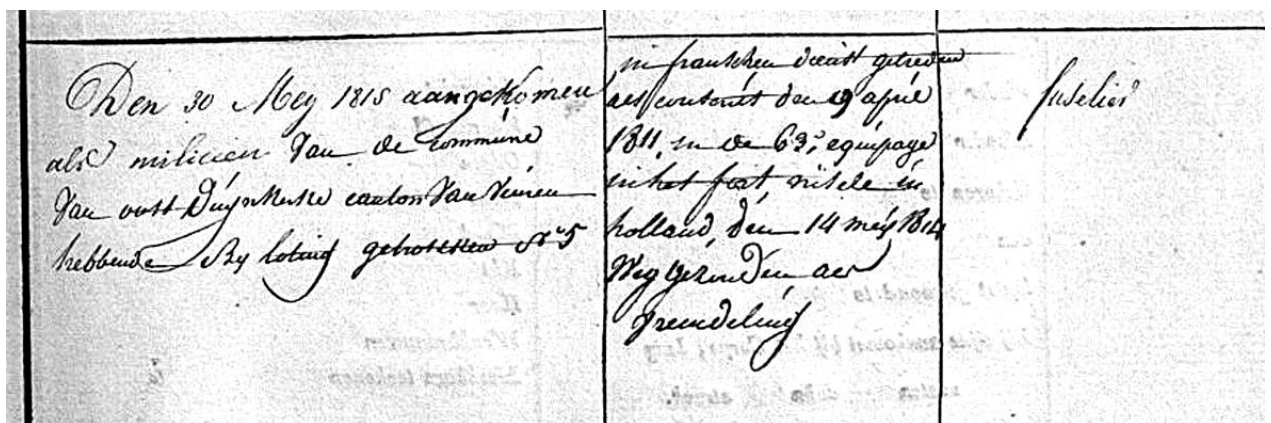 Den 30 Mey 1815 aangekomen
als milicien van de commúne
van oost Dúynkerke canton van Veúren
hebbende by loting getrokken No 5
in franschen dienst getreden
als conscrit den 19 april
1811 in de 63e equipage
in het fort in
holland, den 14 meÿ 1814
weg gezonden als
vremdeling
fuselier